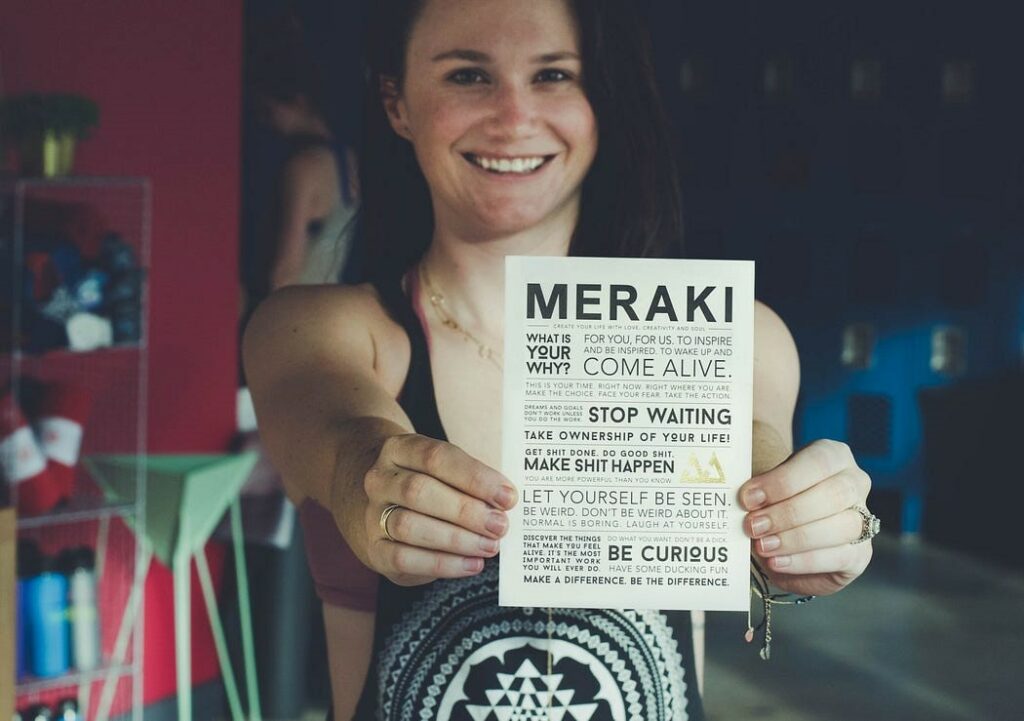 MERAKI
CREATE YOUR LIFE WITH LOVE, CREATIVITY AND SOUL
WHAT IS
YOUR
WHY?
FOR YOU, FOR US. TO INSPIRE
AND BE INSPIRED. TO WAKE UP AND
COME ALIVE.
THIS IS YOUR TIME. RIGHT NOW. RIGHT WHERE YOU ARE.
MAKE THE CHOICE. FACE YOUR FEAR. TAKE THE ACTION.
DREAMS AND GOALS
DON'T WORK UNLESS
YOU DO THE WORK.
STOP WAITING
TAKE OWNERSHIP OF YOUR LIFE!
GET SHIT DONE. DO GOOD SHIT.
MAKE SHIT HAPPEN
YOU ARE MORE POWERFUL THAN YOU KNOW
LET YOURSELF BE SEEN.
BE WEIRD. DON'T BE WEIRD ABOUT IT.
NORMAL IS BORING. LAUGH AT YOURSELF.
DISCOVER THE THINGS
THAT MAKE YOU FEEL
ALIVE. IT'S THE MOST
IMPORTANT WORK
YOU WILL EVER DO.
DO WHAT YOU WANT. DON'T BE A DICK.
BE CURIOUS
HAVE SOME DUCKING FUN.
MAKE A DIFFERENCE. BE THE DIFFERENCE.